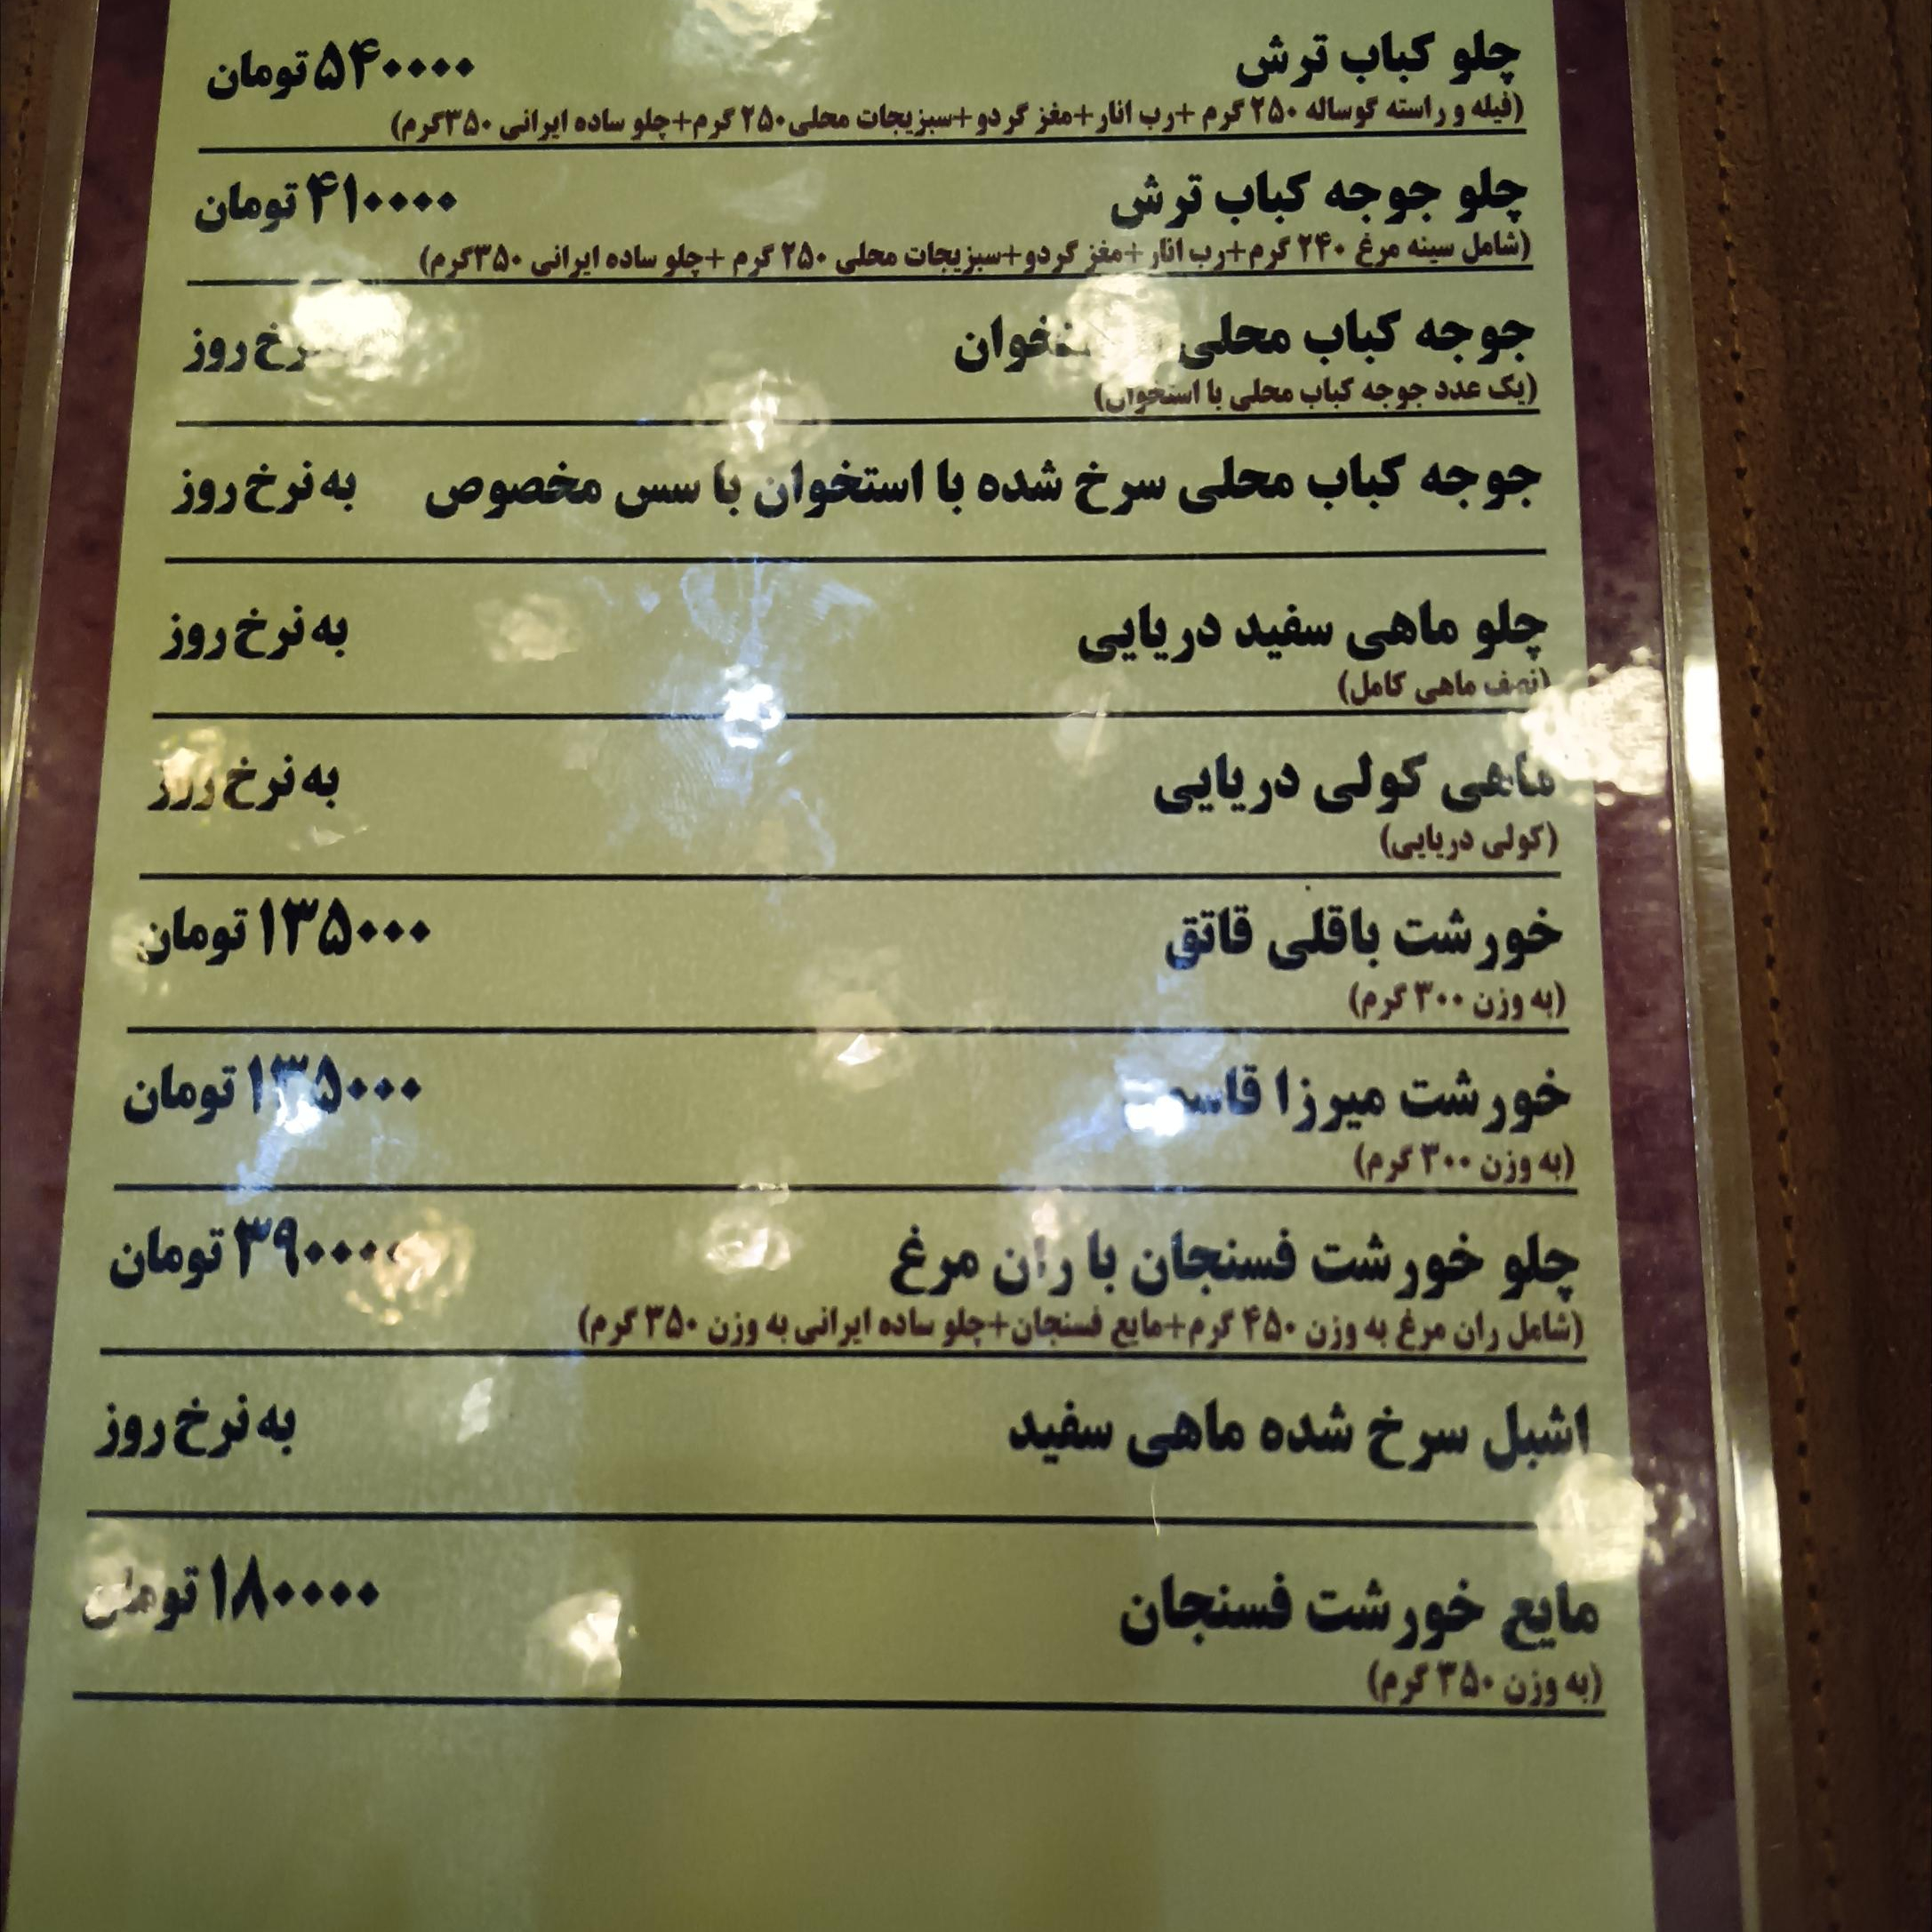 چلو کباب ترش ۵۴۰۰۰۰ تومان
(فیله و راسته گوساله ۲۵۰ گرم +رب انار+مغز گردو+سبزیجات محلی۲۵۰ گرم+چلو ساده ایرانی ۳۵۰گرم)
چلو جوجه کباب ترش ۴۱۰۰۰۰ تومان
(شامل سینه مرغ ۲۴۰ گرم+رب انار +مغز گردو+سبزیجات محلی ۲۵۰ گرم +چلو ساده ایرانی ۳۵۰گرم)
جوجه کباب محلی روز
(یک عدد جوجه کباب محلی با استخوان)
جوجه کباب محلی سرخ شده با استخوان با سس مخصوص به نرخ روز
چلو ماهی سفید دریایی به نرخ روز
(نصف ماهی کامل)
ماهی کولی دریایی به نرخ روز
(کولی دریایی)
خورشت باقلی قاتق ۱۳۵۰۰۰ تومان
(به وزن ۳۰۰ گرم)
خورشت میرزا ۱۳۵۰۰۰ تومان
(به وزن ۳۰۰ گرم)
چلو خورشت فسنجان با ران مرغ ۳۹۰۰۰۰ تومان
(شامل ران مرغ به وزن ۴۵۰ گرم+مایع فسنجان+چلو ساده ایرانی به وزن ۳۵۰ گرم)
اشبل سرخ شده ماهی سفید به نرخ روز
مایع خورشت فسنجان ۱۸۰۰۰۰ تومان
(به وزن ۳۵۰ گرم)